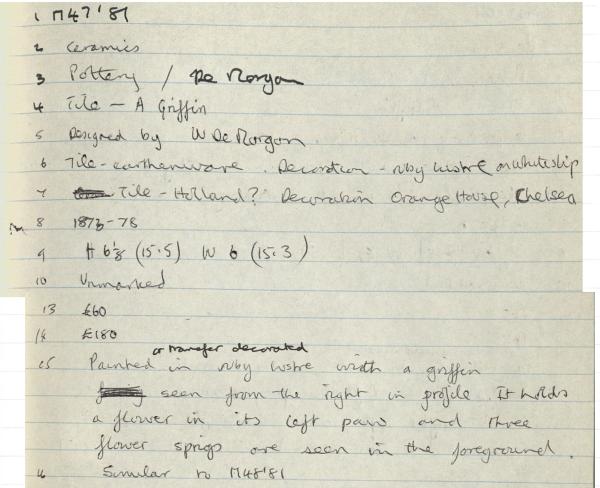 1 M47'81
2 Ceramics
3 Pottery / De Morgan
4 Tile – A Griffin
5 Designed by W De Morgan
6 Tile - earthenware. Decoration - ruby lustre on white slip
7 Tile - Holland? Decoration Orange House, Chelsea
8 1873-78
9 H 6⅛ (15.5) W 6 (15.3)
10 Unmarked
13 £60
14 £180
or transfer decorated
15 Painted in ruby lustre with a griffin
seen from the right in profile. It holds
a flower in its left paw and three
flower sprigs are seen in the foreground.
16 Similar to M48'81